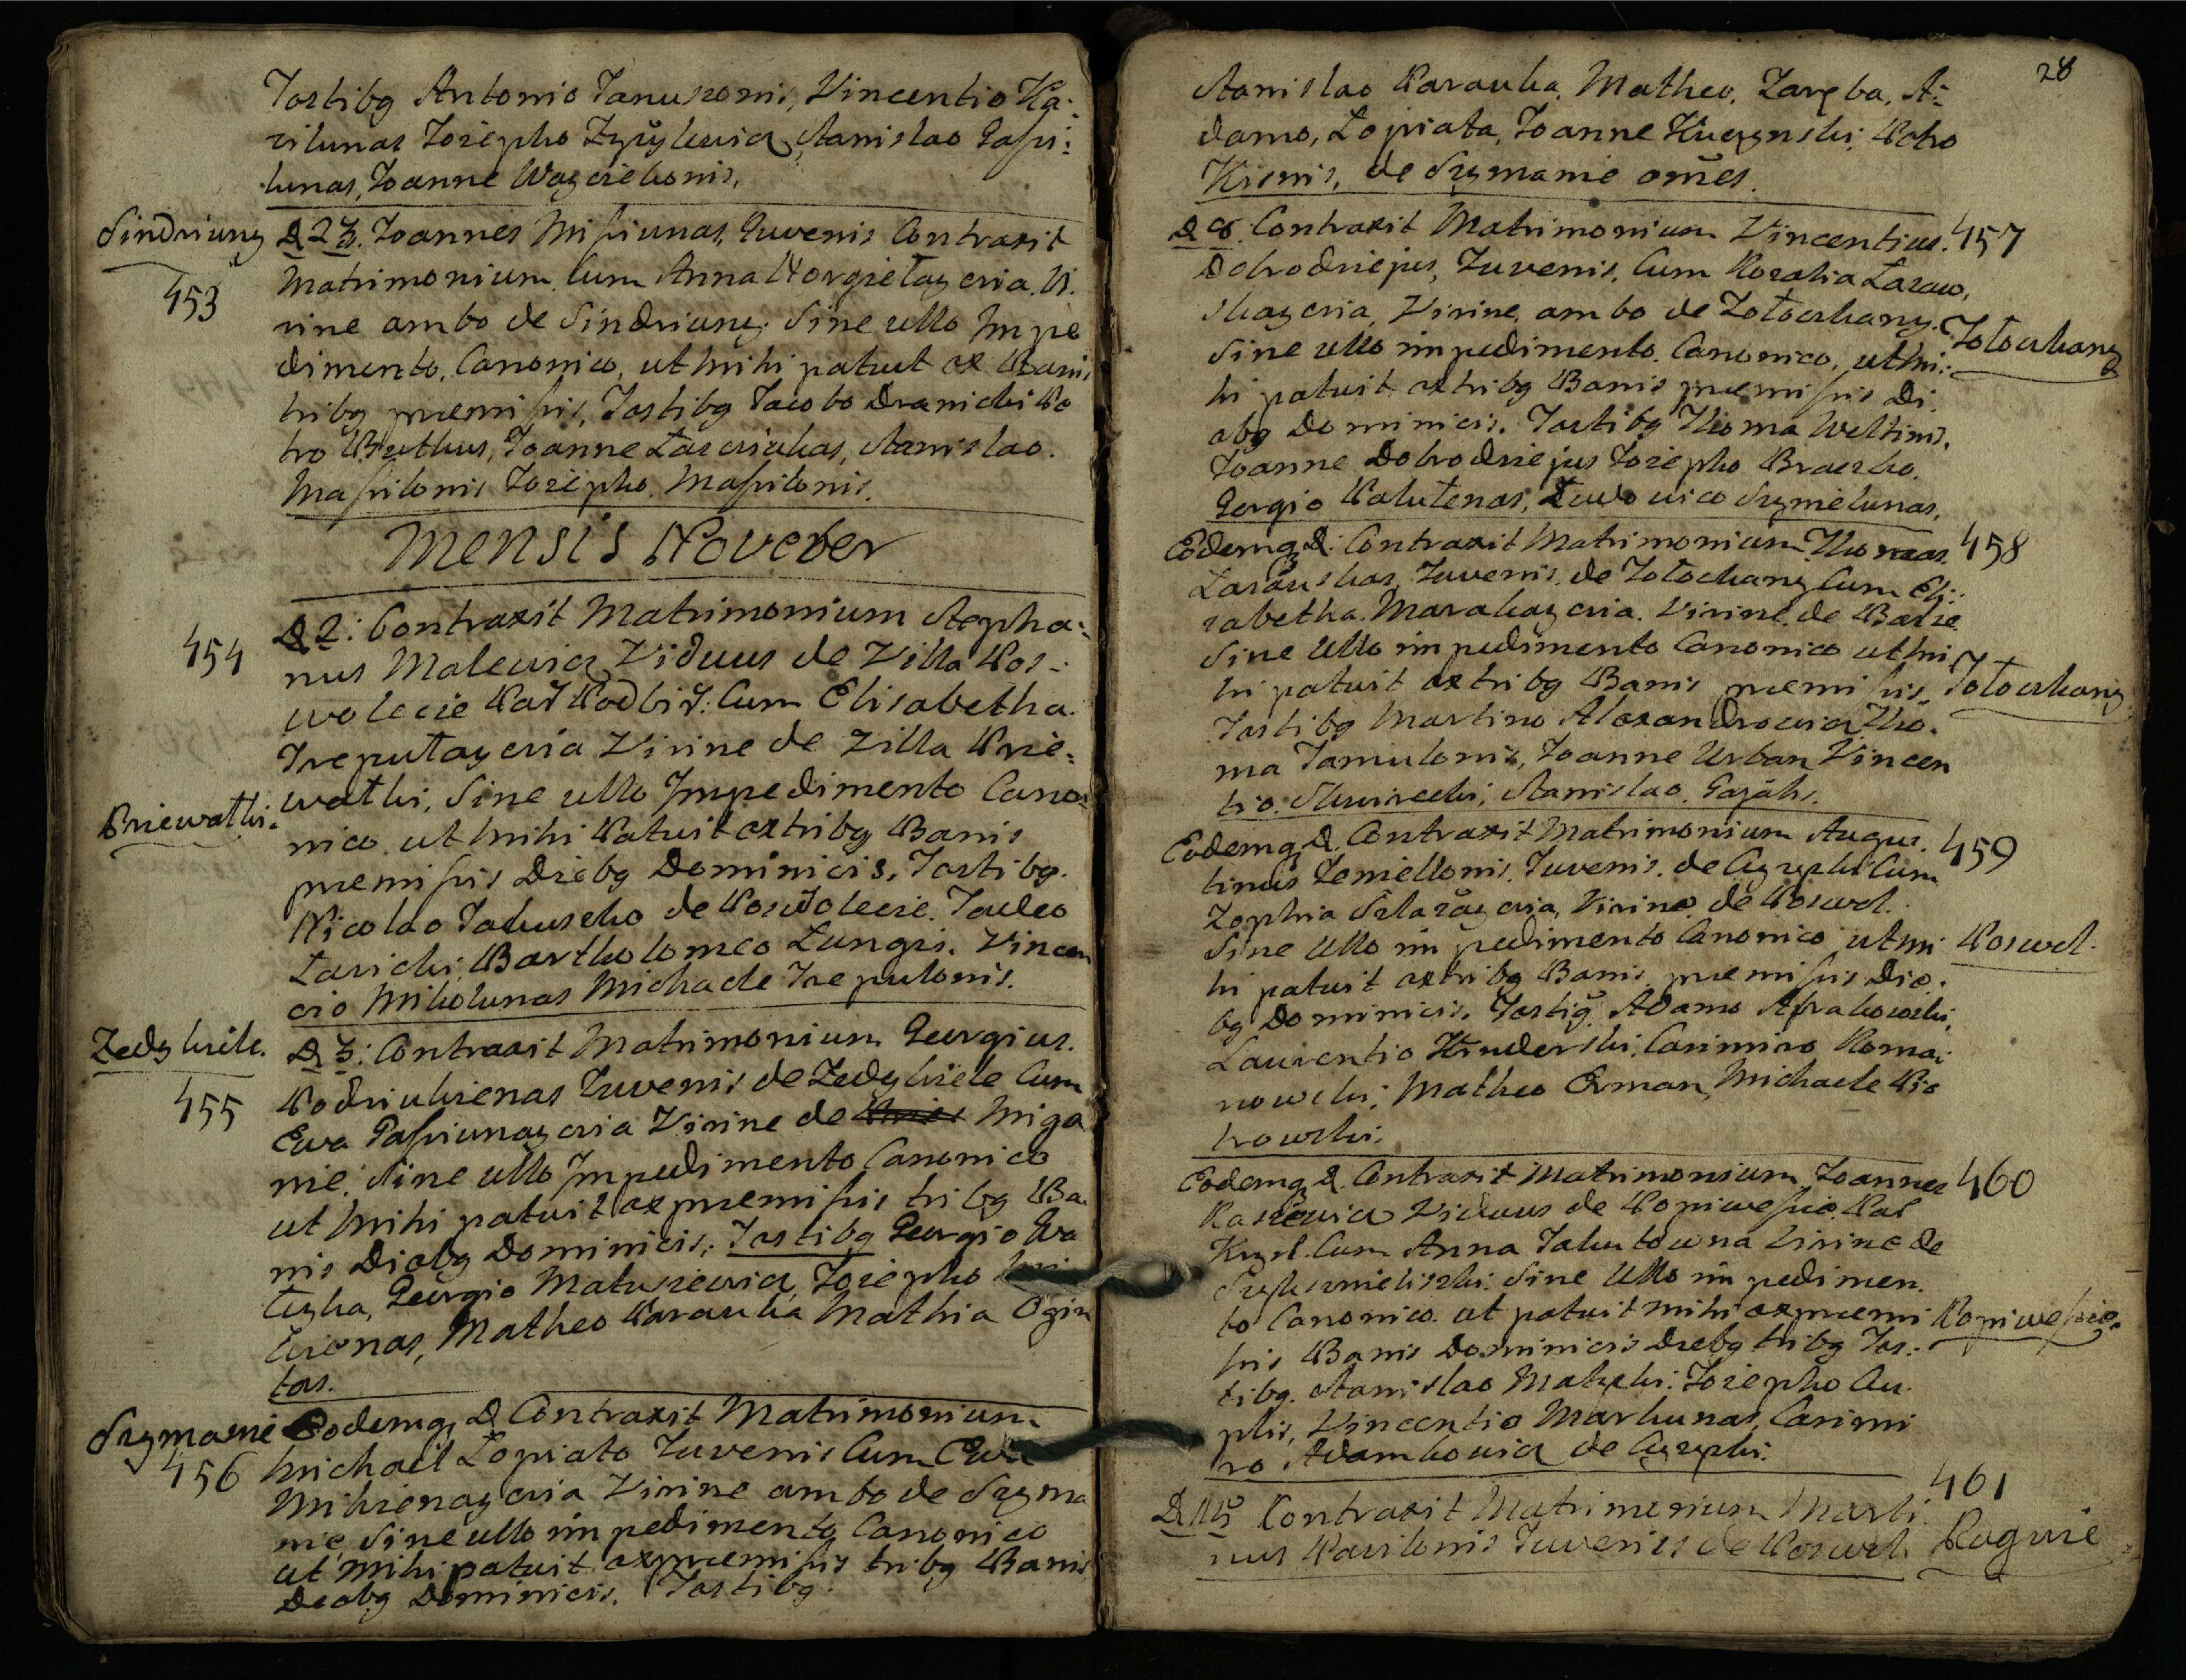 Tostibg Antonio Januszonis, Vincentio Ka:
rilunas Jozepho Zyzylewicz, Stanislao Gassi:
lunas, Joanne Wayciekonis.
Sindriuny D 23. Joannes Missiunas, Juvenis Contraxit
453 Matrimonium, Cum Anna Norgiełayczia. Vi.
rine ambo de Sindriuny. Sine ullo Impe
dimento, Canonico, ut mihi patuit ex Banis
tribg premissis, Tostibg Jacobo Dranicki Pe
tro Butkus, Joanne Łaszczukas, Stanislao.
Massilonis Jozepho. Massilonis.
Mensis Noveber
454 D 2: Contraxit Matrimonium Stepha:
nus Malewicz Viduus de Villa Pos:
wolecie Par Podbir: Cum Elisabetha.
Trepułayczia Virine de Villa Prie:
Priewałki. wałki, Sine ullo Impedimento Cano:
nico. ut mihi Patuit ex tribg Banis
premissis Diebg Dominicis. Tostibg.
Nicolao Jakuszko de Poswolecie. Tadeo
Ławicki, Bartholomeo Lungis. Vincen
cio Mikolunas Michaele Trepulonis.
Zedykiele. D 3: Contraxit Matrimonium Georgius.
455 Podriukienas Juvenis de Zedykiele Cum
Ewa Passiunayczia Virine de Miga
nie. Sine ullo Impedimento Canonico
ut mihi patuit ex premissis tribg Ba
nis Diebg Dominicis. Tostibg Georgio
Georgio Matusiewicz, Jozepho
Matheo Parauka Mathia Ogin
tas.
Szymanie Eodemq D Contraxit Matrimonium
456 Michael Łopiato Juvenis Cum Ewa
Mikienayczia Virine ambo de Szyma
nie, Sine ullo impedimento Canonico
ut mihi patuit ex premissis tribg Banis
Diebg Dominicis. Tostibg.
28
Stanislao Parauka. Matheo, Zaręba, A:
damo, Łopiata, Joanne Kuczynski,
Kisnis, de Szymanie omēs.
D 8. Contraxit Matrimonium Vincentius. 457
Dobrodziejus, Juvenis, Cum Rozalia Łazaw,
skayczia, Virine, ambo de Tołoczkany. Tołoczkany
Sine ullo impedimento. Canonico, ut mi:
hi patuit ex tribg Banis premissis Di
ebg Dominicis. Tostibg Thoma Weltinis,
Joanne Dobrodziejus Jozepho Braszko.
Gergio Palutenas, Ludowico Szymelunas,
Eodemq D: Contraxit Matrimonium Thomas. 458
Łazauskas, Juvenis. de Tołoczkany Cum Eli:
zabetha. Marakayczia. Virine. de Barze
Sine Ullo impedimento Canonico ut mi
hi patuit ex tribg Banis premissis Tołoczkany
Tostibg Martino Alexandrowicz Tho.
ma Jamulonis, Joanne Urban Vincen
tio. Skwirecki, Stanislao.
Eodemq D. Contraxit Matrimonium Augus. 459
tinus Jemiellonis. Juvenis. de Czypzki Cum
Zophia Szlazayczia, Virine de Poswol.
Sine Ullo impedimento Canonico ut mi Poswol.
hi patuit ex tribg Banis. premissis Die:
bg Dominicis. Tostig. Adamo
Laurentio Kinderski, Casimiro Roma:
nowski; Matheo Erman, Michaele Pio
trowski.
Eodemq D. Contraxit Matrimonium Joannes 460
Raszewicz Viduus de Popiwessie. Par
Krzel. Cum Anna Jakutowna Virine de
Sine Ullo impedimen.
to Canonico. ut patuit mihi ex premi Popiwessie.
ssis Banis Dominicis Diebg tribg Tos:
tibg. Stanislao Jozepho Cu.
plis, Vincentio Markunas, Casimi
ro Adamkowicz de Czypzki.
461
D 15 Contraxit Matrimonium Marti.
nus Pawilonis Juvenis de Poswol. Rugwie